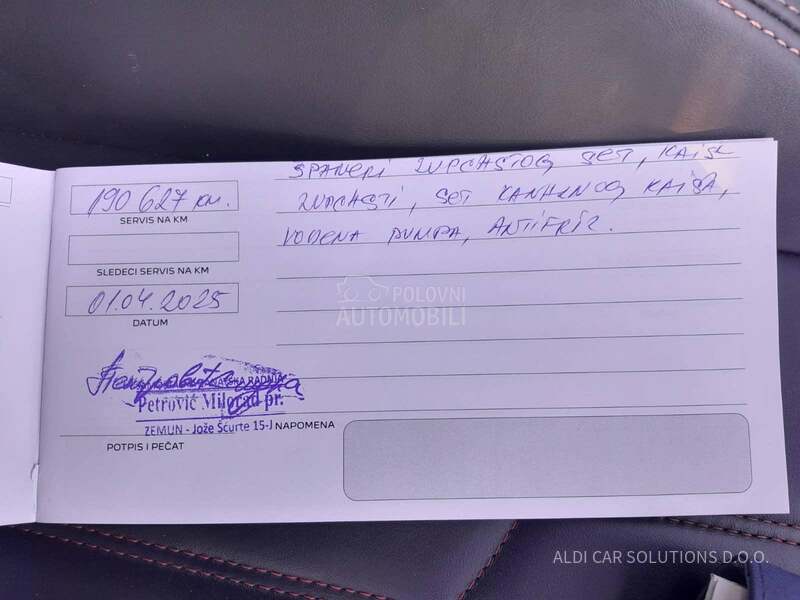 ŠPANERI ZUPČASTOG SET, KAIŠ
ZUPČASTI, SET KANALNOG KAIŠA,
VODENA PUMPA, ANTIFRIZ.
190 627 KM.
SERVIS NA KM
SLEDEĆI SERVIS NA KM
01.04.2025
DATUM
POLOVNI
AUTOMOBILI
SKA RADNJA
Petrović Milorad pr.
ZEMUN - Jože Šćurte 15-J
NAPOMENA
POTPIS I PEČAT
ALDI CAR SOLUTIONS D.O.O.